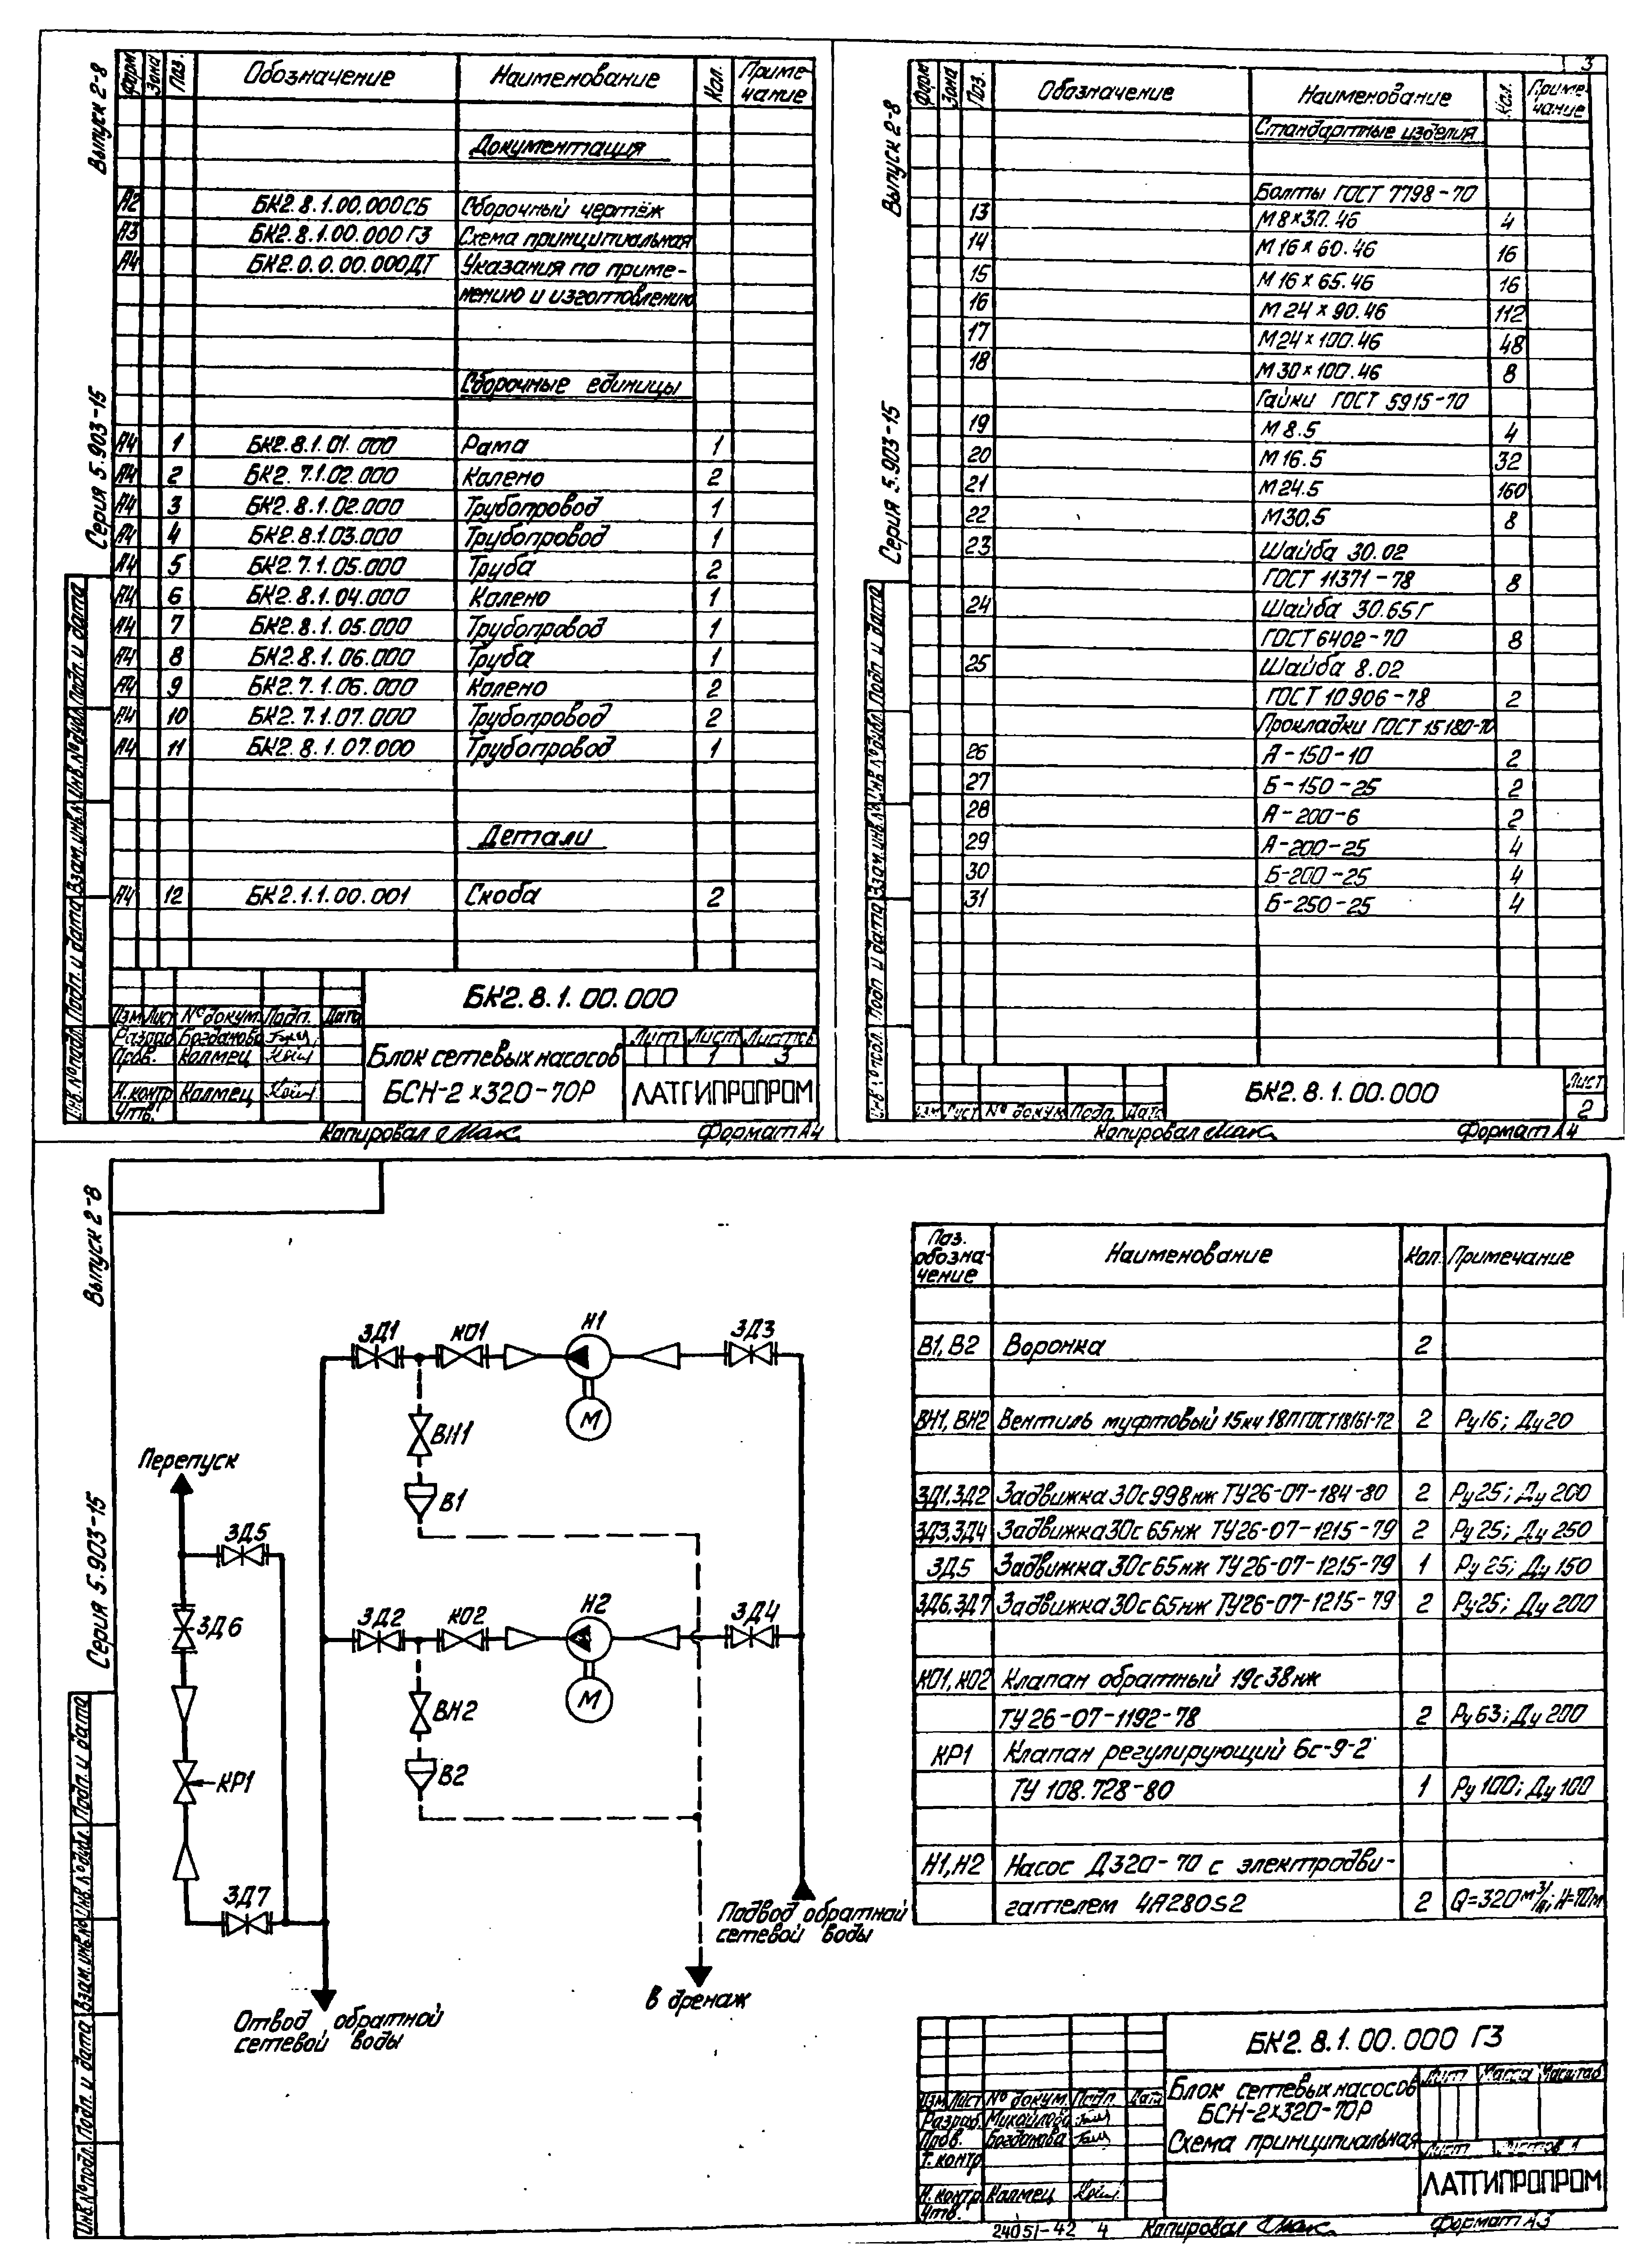 Выпуск 2-8
Серия 5.903-15
Форм Зона Поз. Обозначение Наименование Кол. Приме-
чание
Документация
А2 БК2.8.1.00.000СБ Сборочный чертёж
А3 БК2.8.1.00.000 ГЗ Схема принципиальная
А4 БК2.0.0.00.000ДТ Указания по приме-
нению и изготовлению
Сборочные единицы
А4 1 БК2.8.1.01.000 Рама 1
А4 2 БК2.7.1.02.000 Колено 2
А4 3 БК2.8.1.02.000 Трубопровод 1
А4 4 БК2.8.1.03.000 Трубопровод 1
А4 5 БК2.7.1.05.000 Труба 2
А4 6 БК2.8.1.04.000 Колено 1
А4 7 БК2.8.1.05.000 Трубопровод 1
А4 8 БК2.8.1.06.000 Труба 1
А4 9 БК2.7.1.06.000 Колено 2
А4 10 БК2.7.1.07.000 Трубопровод 2
А4 11 БК2.8.1.07.000 Трубопровод 1
Детали
А4 12 БК2.1.1.00.001 Скоба 2
Инв.№подл. Подп. и дата Взам.инв.№ Инв.№дубл. Подп. и дата
БК2.8.1.00.000
Изм Лист № докум. Подп. Дата
Разраб Богданова
Пров. Калмец
Н.контр Калмец
Утв.
Блок сетевых насосов
БСН-2×320-70Р
Лит Лист Листов
1 3
ЛАТГИПРОПРОМ
Копировал Формат А4
3
Выпуск 2-8
Серия 5.903-15
Форм Зона Поз. Обозначение Наименование Кол. Приме-
чание
Стандартные изделия
Болты ГОСТ 7798-70
13 М8×30.46 4
14 М16×60.46 16
15 М16×65.46 16
16 М24×90.46 112
17 М24×100.46 48
18 М30×100.46 8
Гайки ГОСТ 5915-70
19 М8.5 4
20 М16.5 32
21 М24.5 160
22 М30.5 8
23 Шайба 30.02
ГОСТ 11371-78 8
24 Шайба 30.65Г
ГОСТ 6402-70 8
25 Шайба 8.02
ГОСТ 10906-78 2
Прокладки ГОСТ 15180-70
26 А-150-10 2
27 Б-150-25 2
28 А-200-6 2
29 А-200-25 4
30 Б-200-25 4
31 Б-250-25 4
Инв.№подл. Подп. и дата Взам.инв.№ Инв.№дубл. Подп. и дата
Изм Лист № докум Подп. Дата
БК2.8.1.00.000
Лист
2
Копировал Формат А4
Выпуск 2-8
Серия 5.903-15
ЗД1 КО1 Н1 ЗД3
М
ВН1
В1
Перепуск
ЗД5
ЗД6
ЗД2 КО2 Н2 ЗД4
М
ВН2
В2
КР1
ЗД7
Подвод обратной
сетевой воды
В дренаж
Отвод обратной
сетевой воды
Поз.
обозна-
чение
Наименование Кол. Примечание
В1,В2 Воронка 2
ВН1,ВН2 Вентиль муфтовый 15кч 18П ГОСТ18161-72 2 Ру16; Ду20
ЗД1,ЗД2 Задвижка 30с998нж ТУ26-07-184-80 2 Ру25; Ду200
ЗД3,ЗД4 Задвижка 30с65нж ТУ26-07-1215-79 2 Ру25; Ду250
ЗД5 Задвижка 30с65нж ТУ26-07-1215-79 1 Ру25; Ду150
ЗД6,ЗД7 Задвижка 30с65нж ТУ26-07-1215-79 2 Ру25; Ду200
КО1,КО2 Клапан обратный 19с38нж
ТУ26-07-1192-78 2 Ру63; Ду200
КР1 Клапан регулирующий 6с-9-2
ТУ 108.728-80 1 Ру100; Ду100
Н1,Н2 Насос Д320-70 с электродви-
гателем 4А280S2 2 Q=320м³/ч; Н=70м
Инв.№подл. Подп. и дата Взам.инв.№ Инв.№дубл. Подп. и дата
БК2.8.1.00.000 ГЗ
Изм Лист № докум. Подп. Дата
Разраб. Михайлова
Пров. Богданова
Т.контр
Н.контр. Калмец
Утв.
Блок сетевых насосов
БСН-2×320-70Р
Схема принципиальная
Лит Масса Масштаб
Лист Листов 1
ЛАТГИПРОПРОМ
24051-42 4 Копировал Формат А3